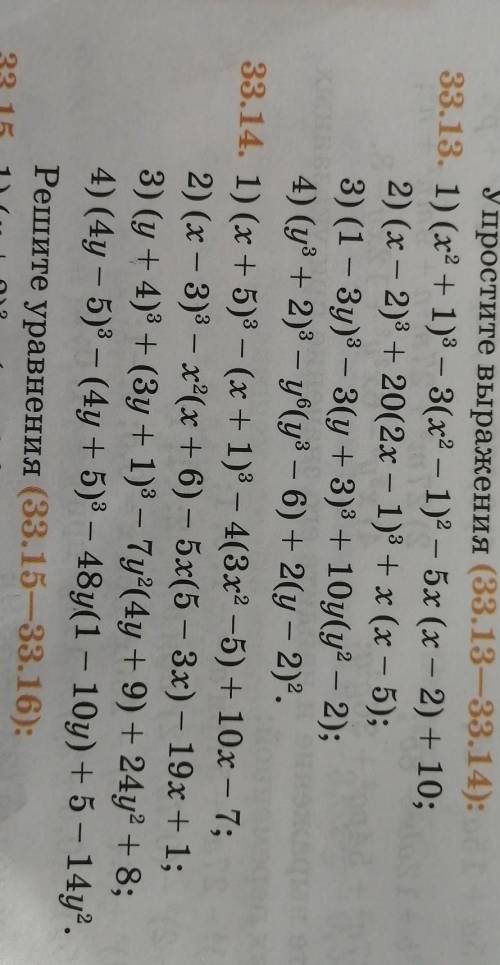 Упростите выражения (33.13—33.14):
33.13. 1) (x² + 1)³ – 3(x² – 1)² – 5x (x – 2) + 10;
2) (x – 2)³ + 20(2x – 1)³ + x (x – 5);
3) (1 – 3y)³ – 3(y + 3)³ + 10y(y² – 2);
4) (y³ + 2)³ – y⁶(y³ – 6) + 2(y – 2)².
33.14. 1) (x + 5)³ – (x + 1)³ – 4(3x² – 5) + 10x – 7;
2) (x – 3)³ – x²(x + 6) – 5x(5 – 3x) – 19x + 1;
3) (y + 4)³ + (3y + 1)³ – 7y²(4y + 9) + 24y² + 8;
4) (4y – 5)³ – (4y + 5)³ – 48y(1 – 10y) + 5 – 14y².
Решите уравнения (33.15—33.16):
33.15. 1)